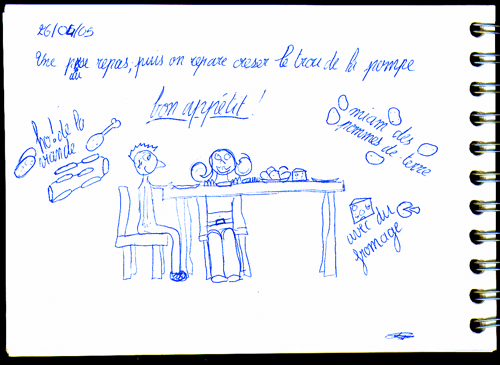 26/06/05
Une pose repas, puis on repare creser le trou de la pompe
bon appétit !
ho! de la
viande
miam des
pommes de terre
avec du
fromage